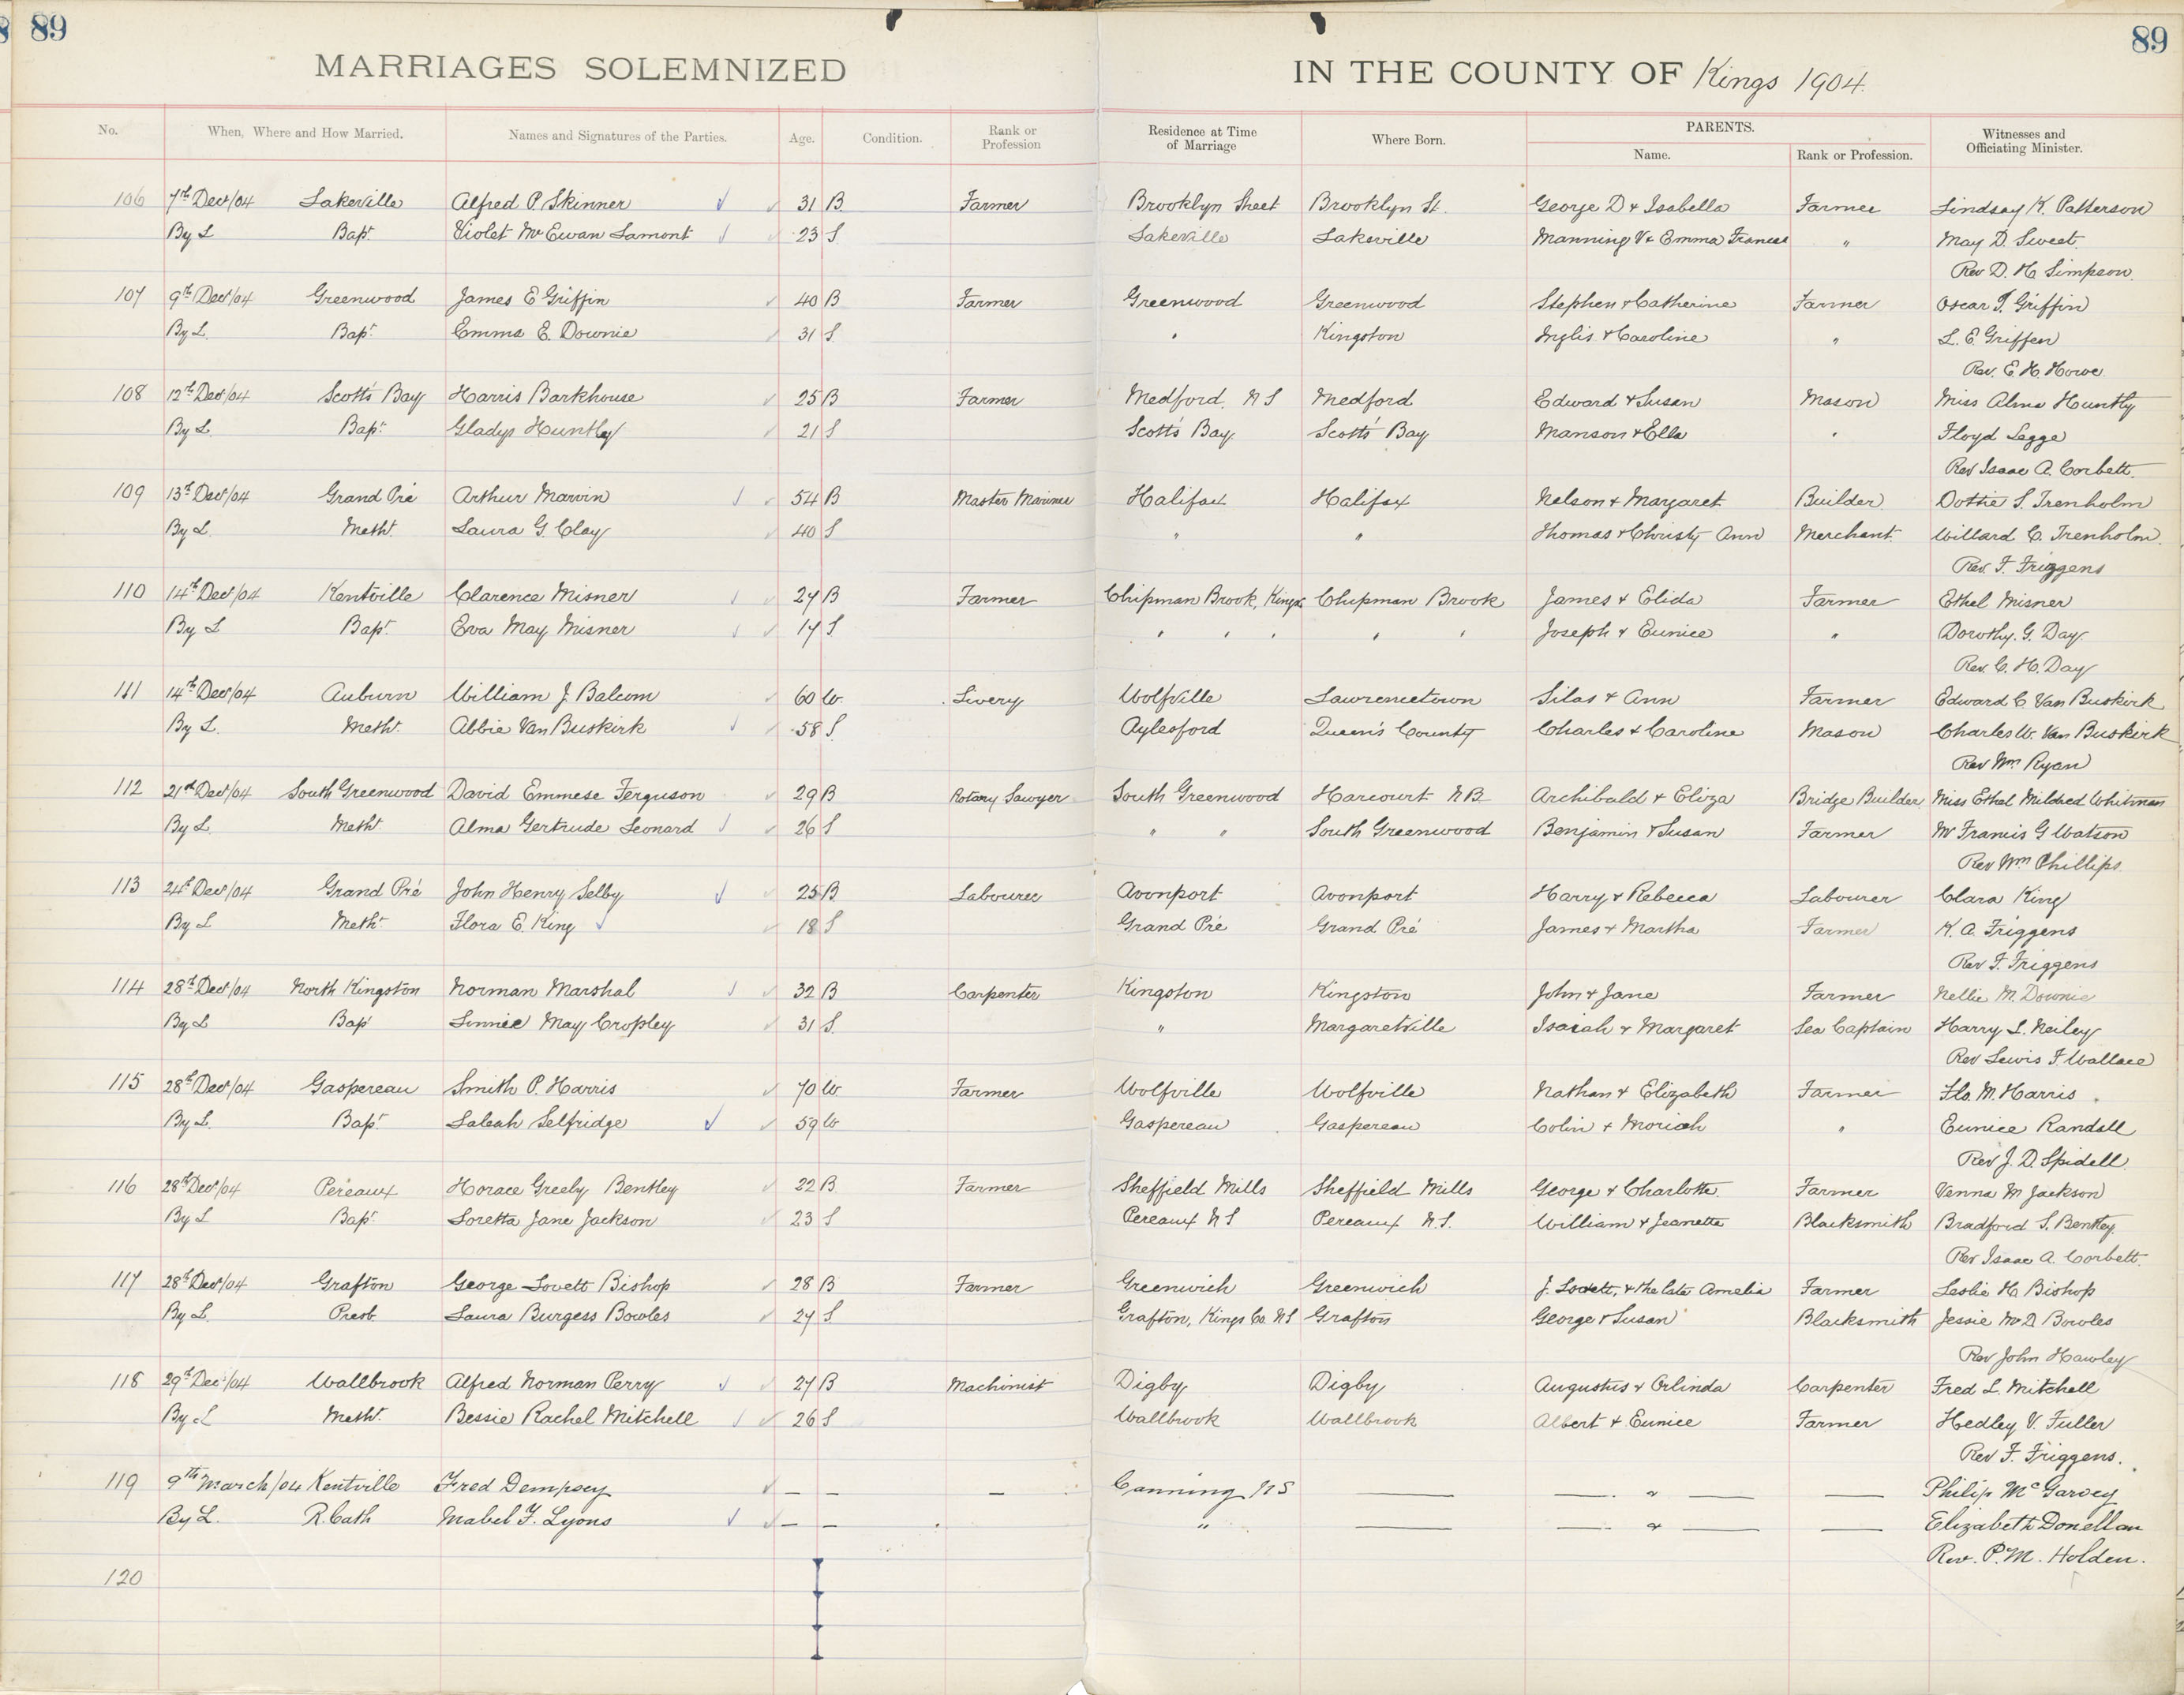 89 89
MARRIAGES SOLEMNIZED IN THE COUNTY OF Kings 1904.
No. When, Where and How Married. Names and Signatures of the Parties. Age. Condition. Rank or Profession Residence at Time of Marriage Where Born. PARENTS. Name. Rank or Profession. Witnesses and Officiating Minister.
106 7th Decr/04 Lakeville Alfred P. Skinner 31 B Farmer Brooklyn Street Brooklyn St. George D & Isabella Farmer Lindsay K. Patterson
By L Bapt. Violet McEwan Lamont 23 S Lakeville Lakeville Manning V & Emma Frances " May D. Sweet.
Rev D. H. Simpson.
107 9th Decr/04 Greenwood James E Griffin 40 B Farmer Greenwood Greenwood Stephen & Catherine Farmer Oscar T. Griffin
By L. Bapt. Emma E. Downie 31 S " Kingston Inglis & Caroline " L. E. Griffen
Rev. E. H. Howe
108 12th Decr/04 Scott's Bay Harris Barkhouse 25 B Farmer Medford, N S Medford Edward & Susan Mason Miss Alma Huntly
By L. Bapt. Gladys Huntley 21 S Scott's Bay Scott's Bay Manson & Ella " Floyd Legge
Rev Isaac A. Corbett.
109 13th Decr/04 Grand Pré Arthur Marvin 54 B Master Mariner Halifax Halifax Nelson & Margaret Builder Dottie S. Trenholm
By L. Metht. Laura G. Clay 40 S " " Thomas & Christy Ann Merchant. Willard C. Trenholm.
Rev. F. Friggens
110 14th Decr/04 Kentville Clarence Misner 27 B Farmer Chipman Brook, Kings Chipman Brook James & Elida Farmer Ethel Misner
By L Bapt. Eva May Misner 17 S " " " " " Joseph & Eunice " Dorothy. G. Day
Rev. C. H. Day
111 14th Decr/04 Auburn William J. Balcom 60 W. Livery Wolfville Lawrencetown Silas & Ann Farmer Edward C Van Buskirk
By L. Metht. Abbie Van Buskirk 58 S. Aylesford Queen's County Charles & Caroline Mason Charles W. Van Buskirk
Rev Wm Ryan
112 21st Decr/04 South Greenwood David Emmese Ferguson 29 B Rotary Sawyer South Greenwood Harcourt N.B. Archibald & Eliza Bridge Builder Miss Ethel Mildred Whitman
By L. Metht. Alma Gertrude Leonard 26 S " " South Greenwood Benjamin & Susan Farmer Mr Francis G Watson
Rev Wm Phillips.
113 24th Decr/04 Grand Pré John Henry Selby 25 B Labourer Avonport Avonport Harry & Rebecca Labourer Clara King
By L Metht. Flora E. King 18 S Grand Pré Grand Pré James & Martha Farmer K. A. Friggens
Rev F. Friggens
114 28th Decr/04 North Kingston Norman Marshal 32 B Carpenter Kingston Kingston John & Jane Farmer Nellie M. Downie
By L Bapt Linnie May Cropley 31 S. " Margaretville Isaiah & Margaret Sea Captain Harry L. Neiley
Rev Lewis F. Wallace
115 28th Decr/04 Gaspereau Smith P. Harris 70 W Farmer Wolfville Wolfville Nathan & Elizabeth Farmer Flo. M. Harris
By L. Bapt. Saleah Selfridge 59 W Gaspereau Gaspereau Colin & Moriah " Eunice Randall
Rev J. D. Spidell.
116 28th Decr/04 Pereaux Horace Greely Bentley 22 B Farmer Sheffield Mills Sheffield Mills George & Charlotte Farmer Venna M Jackson
By L Bapt. Loretta Jane Jackson 23 S Pereaux N S Pereaux N.S. William & Jeanette Blacksmith Bradford S. Bentley.
Rev Isaac A. Corbett.
117 28th Decr/04 Grafton George Lovett Bishop 28 B Farmer Greenwich Greenwich J. Lovett, & the late Amelia Farmer Leslie H. Bishop
By L. Presb Laura Burgess Bowles 27 S Grafton, Kings Co. NS Grafton George & Susan Blacksmith Jessie McD Bowles
Rev John Hawley
118 29th Dec/04 Wallbrook Alfred Norman Perry 27 B Machinist Digby Digby Augustus & Orlinda Carpenter Fred L. Mitchell
By L Metht. Bessie Rachel Mitchell 26 S Wallbrook Wallbrook Albert & Eunice Farmer Hedley V. Fuller
Rev F. Friggens.
119 9th March/04 Kentville Fred Dempsey — — — Canning NS — — & — — Philip McGarvey
By L. R. Cath Mabel F. Lyons — — " — — & — — Elizabeth Donellan
Rev. P. M. Holden.
120